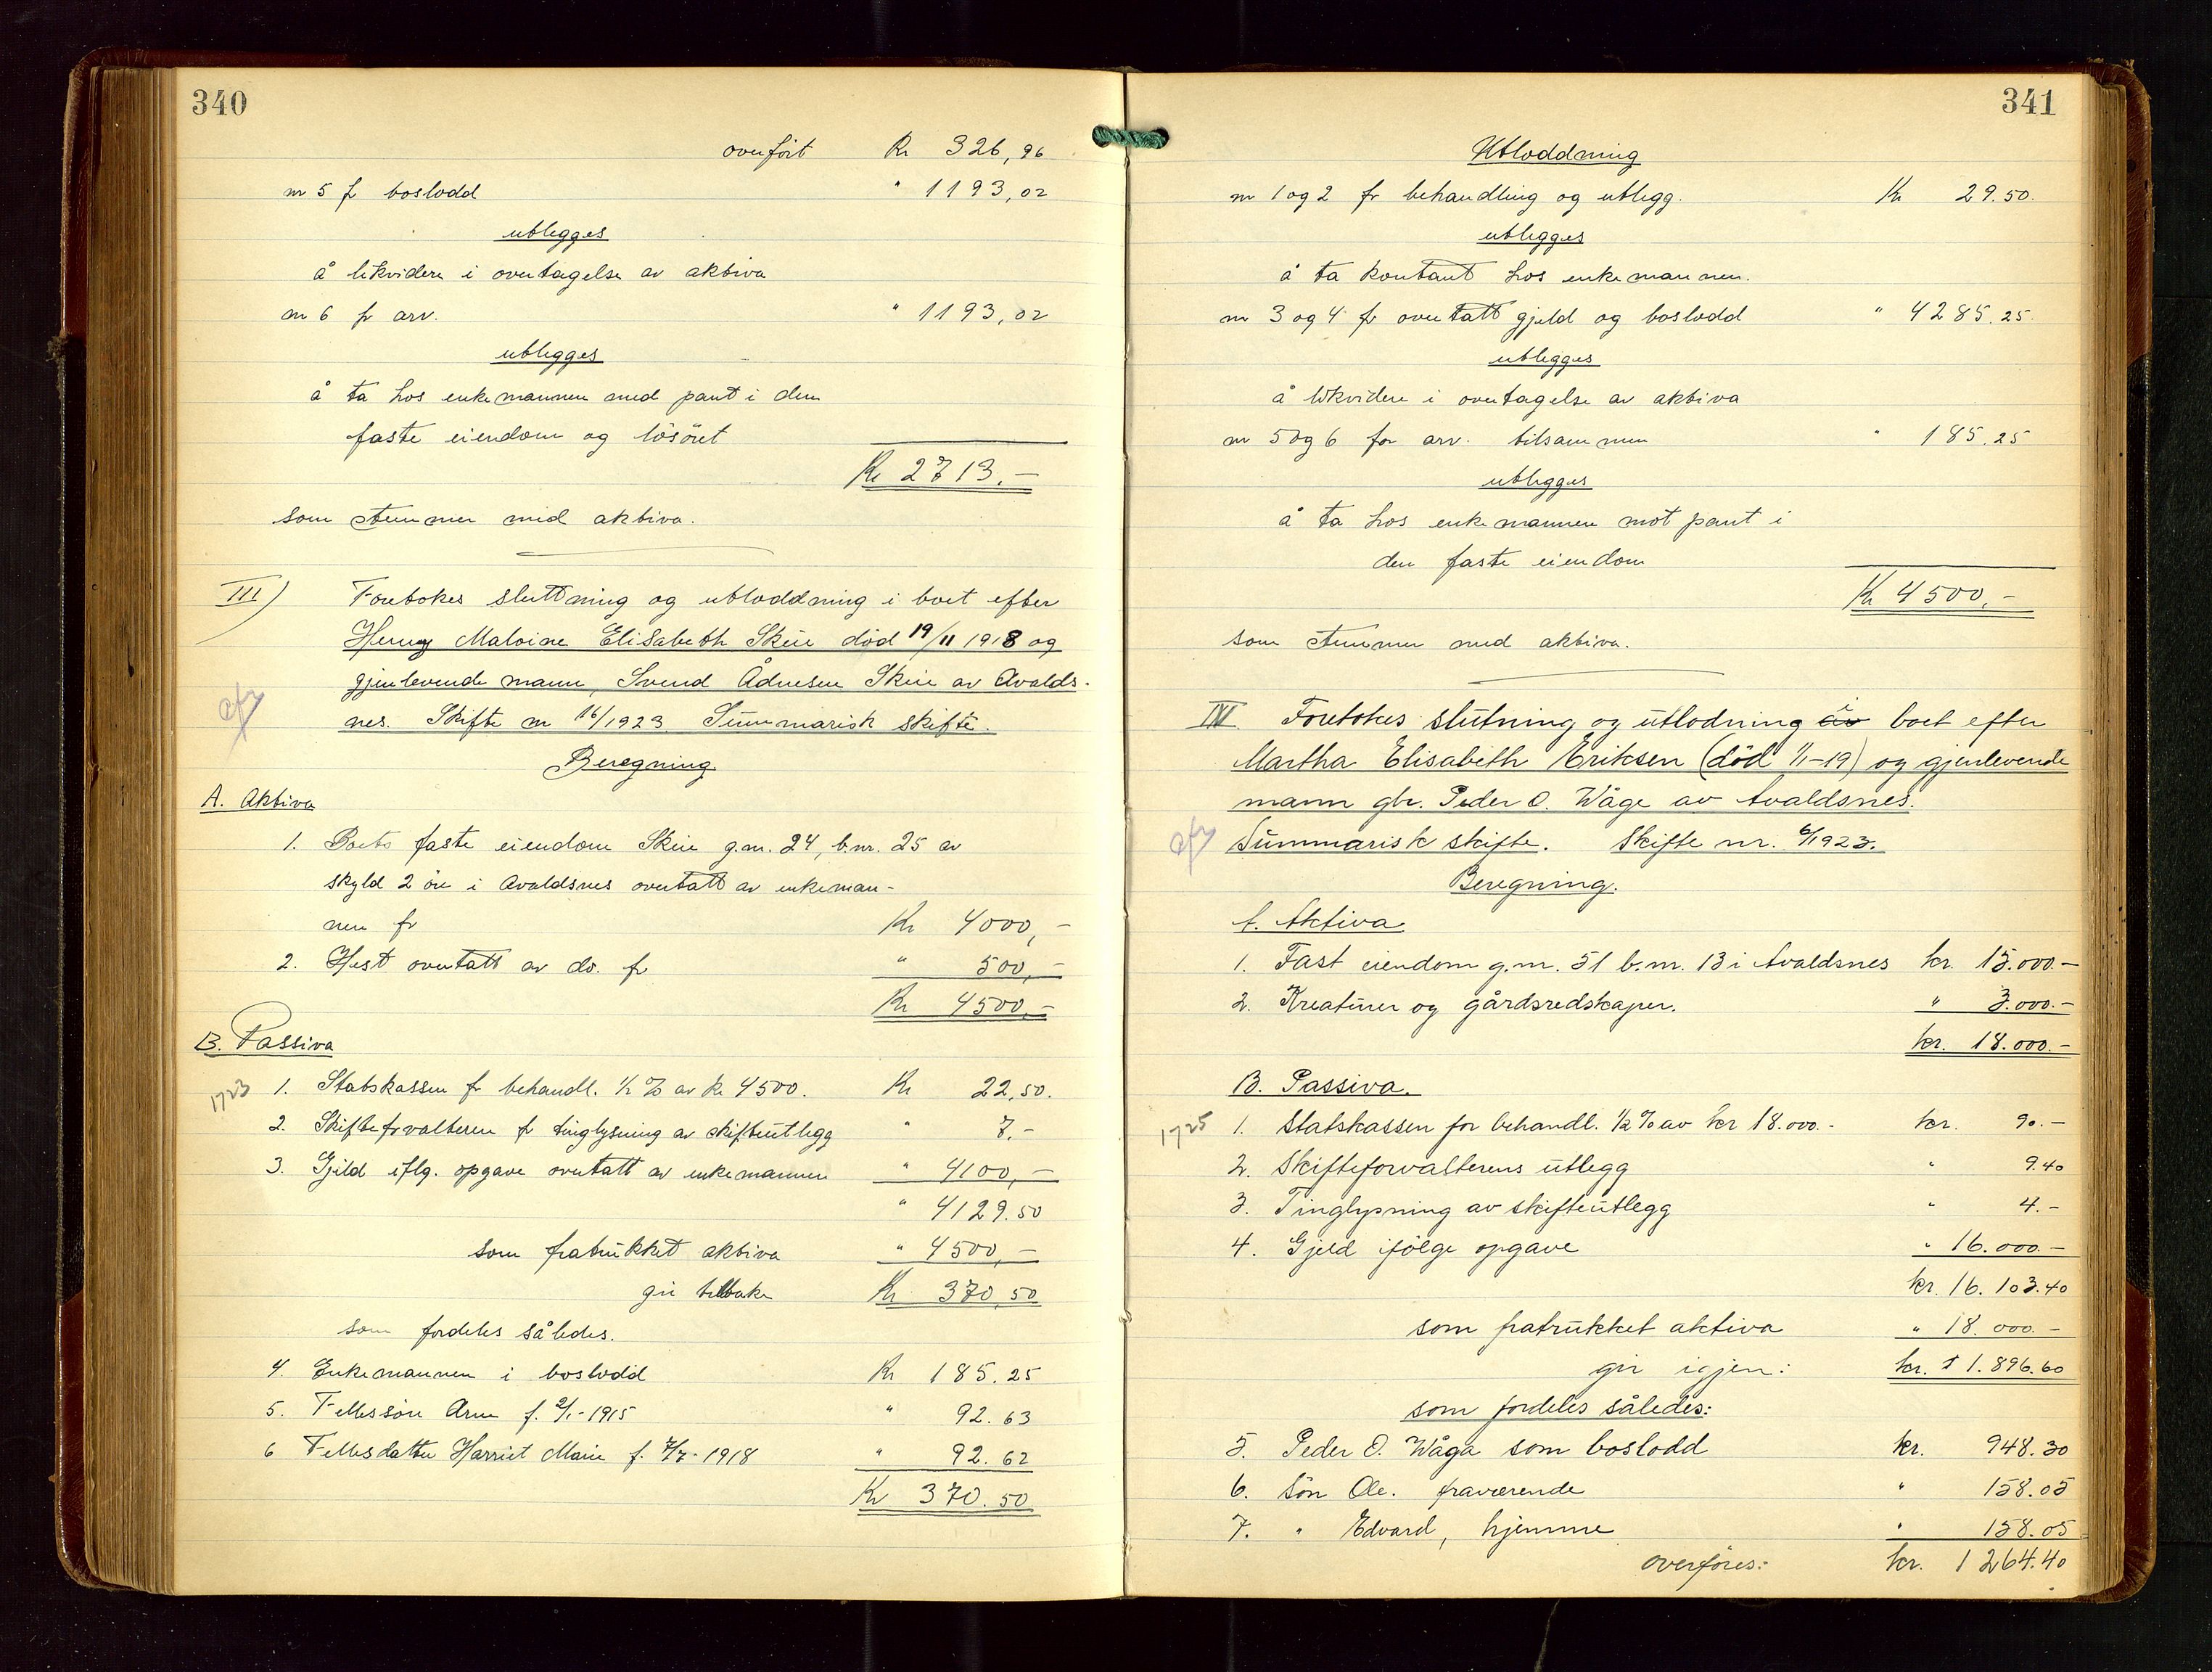 340
overført Kr 326,96
nr 5 f boslodd " 1193,02
utlegges
å likvidere i overtagelse av aktiva
nr 6 fr arv. " 1193,02
utlegges
å ta hos enkemannen med pant i den
faste eiendom og løsøret
Kr 2713.-
som stemmer med aktiva.
III) Foretokes sluttning og utloddning i boet efter
Malvine Elisabeth Skeie død 19/11 1918 og
gjenlevende mann, Svend Ådnesen Skeie av Avalds-
nes. Skifte nr 16/1923. Summarisk skifte.
Beregning
A. Aktiva
1. Boets faste eiendom Skeie g.nr. 24, b.nr. 25 av
skyld 2 øre i Avaldsnes overtatt av enkeman-
nen fr Kr 4000,-
2. Hest overtatt av do. fr " 500,-
Kr 4500,-
B. Passiva
1723 1. Statskassen fr behandl. 1/2 % av kr 4500. Kr 22,50.
2. Skifteforvalteren fr tinglysning av skifteutlegg " 7.-
3. Gjeld iflg. opgave overtatt av enkemannen " 4100,-
" 4129.50
som fratrukket aktiva " 4500,-
gir tilbake Kr 370,50
som fordeles således.
4. Enkemannen i boslodd Kr 185.25
5. Fellessøn Arne f. 2/1-1915 " 92.63
6 Fellesdatter Harriet Marie f. 7/7-1918 " 92.62
Kr 370.50
341
Utloddning
nr 1 og 2 fr behandling og utlegg. Kr 29.50.
utlegges
å ta kontant hos enkemannen.
nr 3 og 4 fr overtatt gjeld og boslodd " 4285.25.
utlegges
å likvidere i overtagelse av aktiva
nr 5 og 6 for arv. tilsammen " 185.25
utlegges
å ta hos enkemannen mot pant i
den faste eiendom
Kr 4500,-
som stemmer med aktiva.
IV. Foretokes slutning og utlodning i boet efter
Martha Elisabeth Eriksen (død 1/1-19) og gjenlevende
mann gbr. Peder O. Våge av Avaldsnes.
Summarisk skifte. Skifte nr. 6/1923.
Beregning.
A. Aktiva
1. Fast eiendom g.nr. 51 b.nr. 13 i Avaldsnes kr. 15.000.-
2. Kreaturer og gårdsredskaper. " 3.000.-
kr. 18.000.-
B. Passiva.
1725 1. Statskassen for behandl. 1/2 % av kr 18.000.- kr. 90.-
2. Skifteforvalterens utlegg " 9.40
3. Tinglysning av skifteutlegg " 4.-
4. Gjeld ifølge opgave " 16.000.-
kr. 16.103.40
som fratrukket aktiva " 18.000.-
gir igjen: kr. 1.896.60
som fordeles således:
5. Peder O. Våga som boslodd kr. 948.30
6. Søn Ole. fraværende " 158.05
7. " Edvard, hjemme " 158.05
overføres: kr. 1264.40